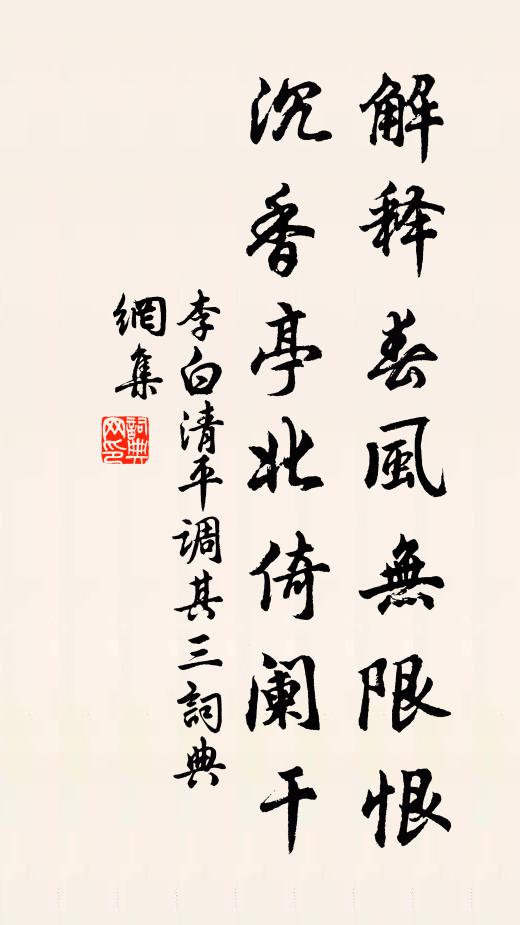 解释春風無限恨
沉香亭北倚阑干
李白清平调其三詞典
網集
詞典
网印